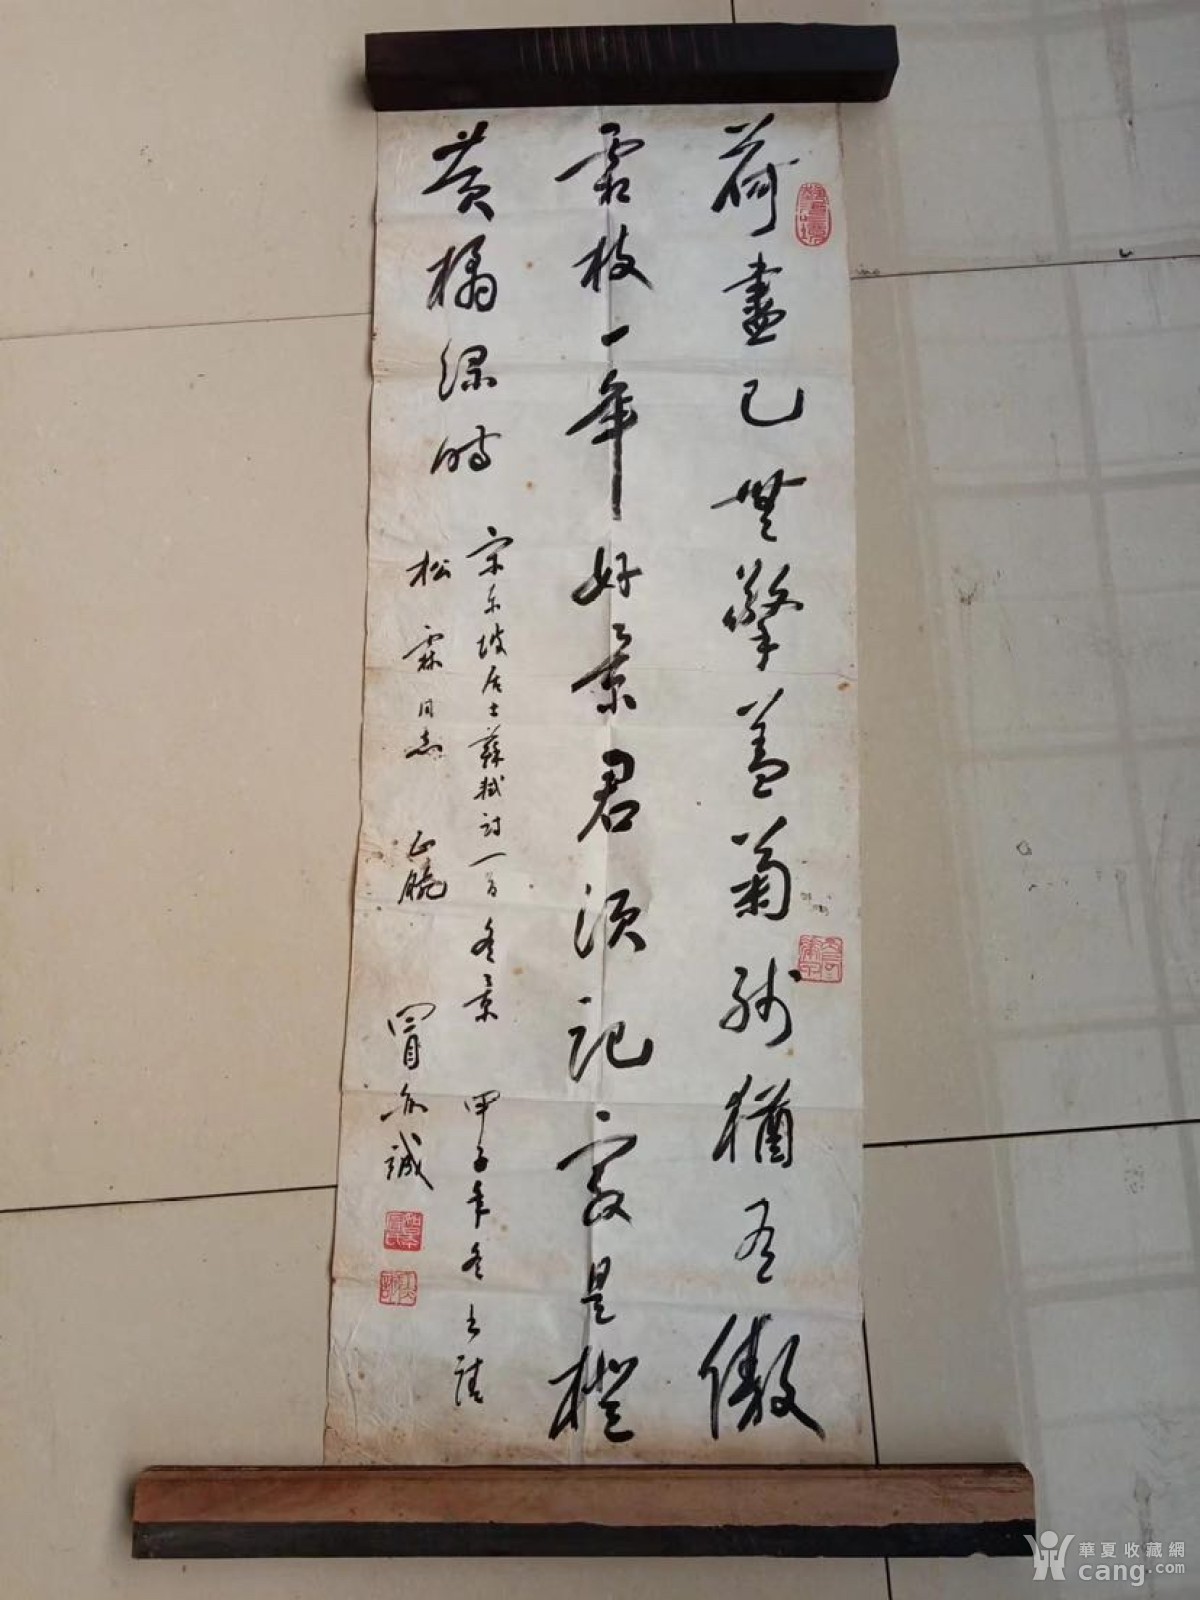 荷盡已無擎蓋菊殘猶有傲
霜枝一年好景君須記最是橙
黃橘綠時
宋東坡居士蘇軾詩一首冬景 甲子年冬書請
松霖同志 正腕 冒亦誠
華夏收藏網
cang.com